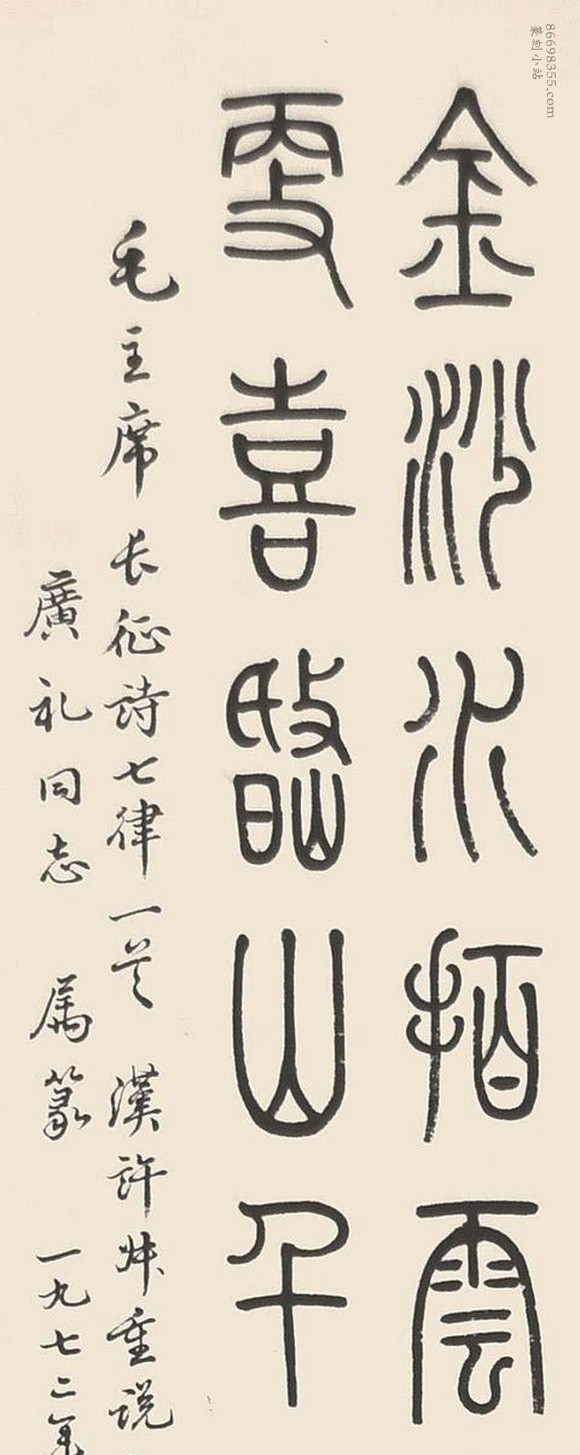 86698355.com
篆刻小站
金沙水拍雲
更喜岷山千
毛主席长征詩七律一首 漢許叔重説
廣礼同志 属篆 一九七二年